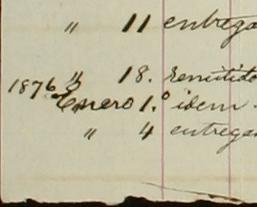 " 11 entrega
" 18. remitido
1876 Enero 1.º idem
" 4 entrega